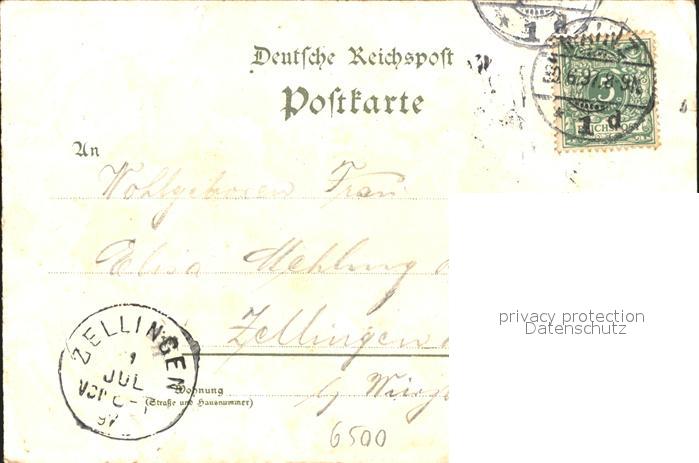 Deutsche Reichspost
Postkarte
5
REICHSPOST
1 d
1 d
An
Wohlgeboren Frau
Elisa Mehling
Zellingen
privacy protection
Datenschutz
ZELLINGEN
1
JUL
97
Wohnung
(Straße und Hausnummer)
b/
6500